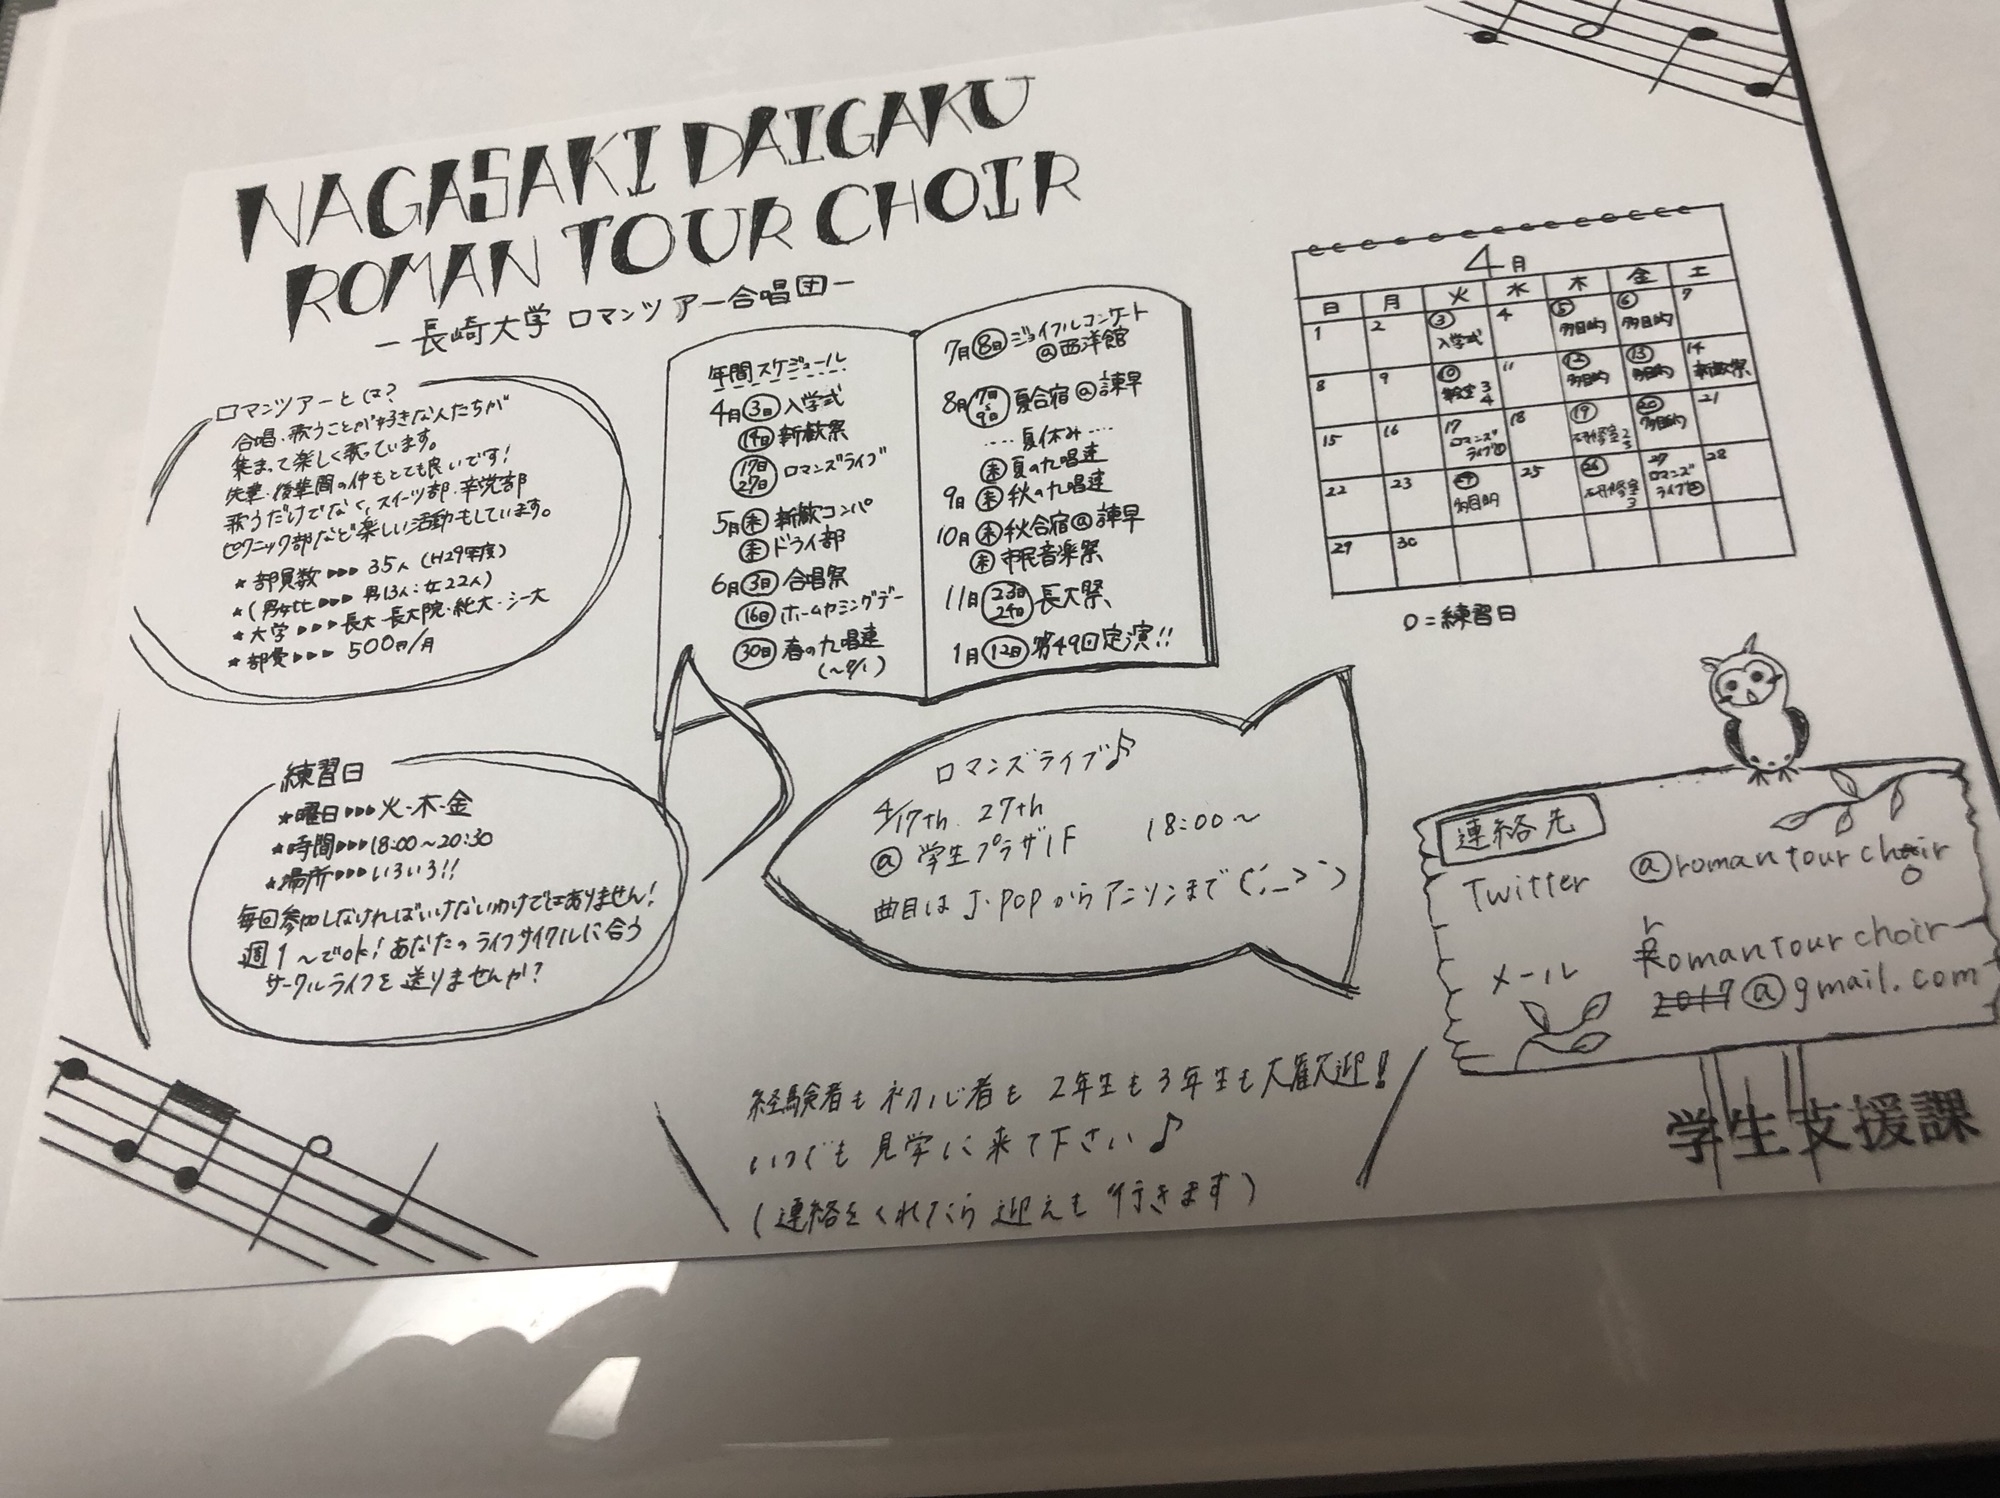 NAGASAKI DAIGAKU
ROMAN TOUR CHOIR
-長崎大学 ロマンツアー合唱団-
ロマンツアーとは?
合唱・歌うことが好きな人たちが
集まって楽しく歌っています。
先輩・後輩間の仲もとても良いです!
歌うだけでなく、スイーツ部・辛党部
ピクニック部など楽しい活動もしています。
★部員数▸▸▸35人(H29年度)
★(男女比▸▸▸男13人:女22人)
★大学▸▸▸長大・長大院・純大・シー大
★部費▸▸▸500円/月
年間スケジュール
4月3日入学式
14日新歓祭
17日 27日 ロマンズライブ
5月未新歓コンパ
未ドライ部
6月3日合唱祭
16日ホームカミングデー
30日春の九唱連
(~7/1)
7月8日ジョイフルコンサート
@西洋館
8月7日~9日夏合宿@諫早
····夏休み····
未夏の九唱連
9月未秋の九唱連
10月未秋合宿@諫早
未市民音楽祭
11月23日 24日長大祭
1月12日第49回定演!!
4月
日 月 火 水 木 金 土
1 2 3 4 5 6 7
入学式 多目的 多目的
8 9 10 11 12 13 14
教室 3 4 多目的 多目的 新歓祭
15 16 17 18 19 20 21
ロマンズライブ① 研修室2 3 多目的
22 23 24 25 26 27 28
多目的 研修室3 ロマンズライブ②
29 30
○=練習日
練習日
★曜日▸▸▸火・木・金
★時間▸▸▸18:00~20:30
★場所▸▸▸いろいろ!!
毎回参加しなければいけないわけではありません!
週1~でok!あなたのライフサイクルに合う
サークルライフを送りませんか?
ロマンズライブ♪
4/17th. 27th
@学生プラザ1F 18:00~
曲目はJ-POPからアニソンまで(´,_>`)
連絡先
Twitter @romantourchoir
メール romantourchoir
@gmail.com
経験者も初心者も2年生も3年生も大歓迎!
いつでも見学に来て下さい♪
(連絡をくれたら迎えも行きます)
学生支援課